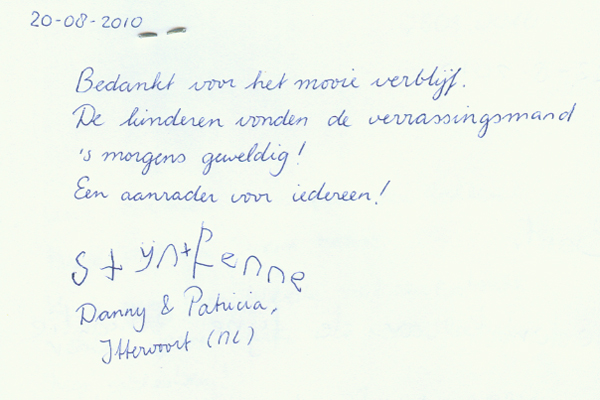 20-08-2010
Bedankt voor het mooie verblijf.
De kinderen vonden de verrassingsmand
's morgens geweldig!
Een aanrader voor iedereen!
Stijn + Fenne
Danny & Patricia,
Ittervoort (NL)